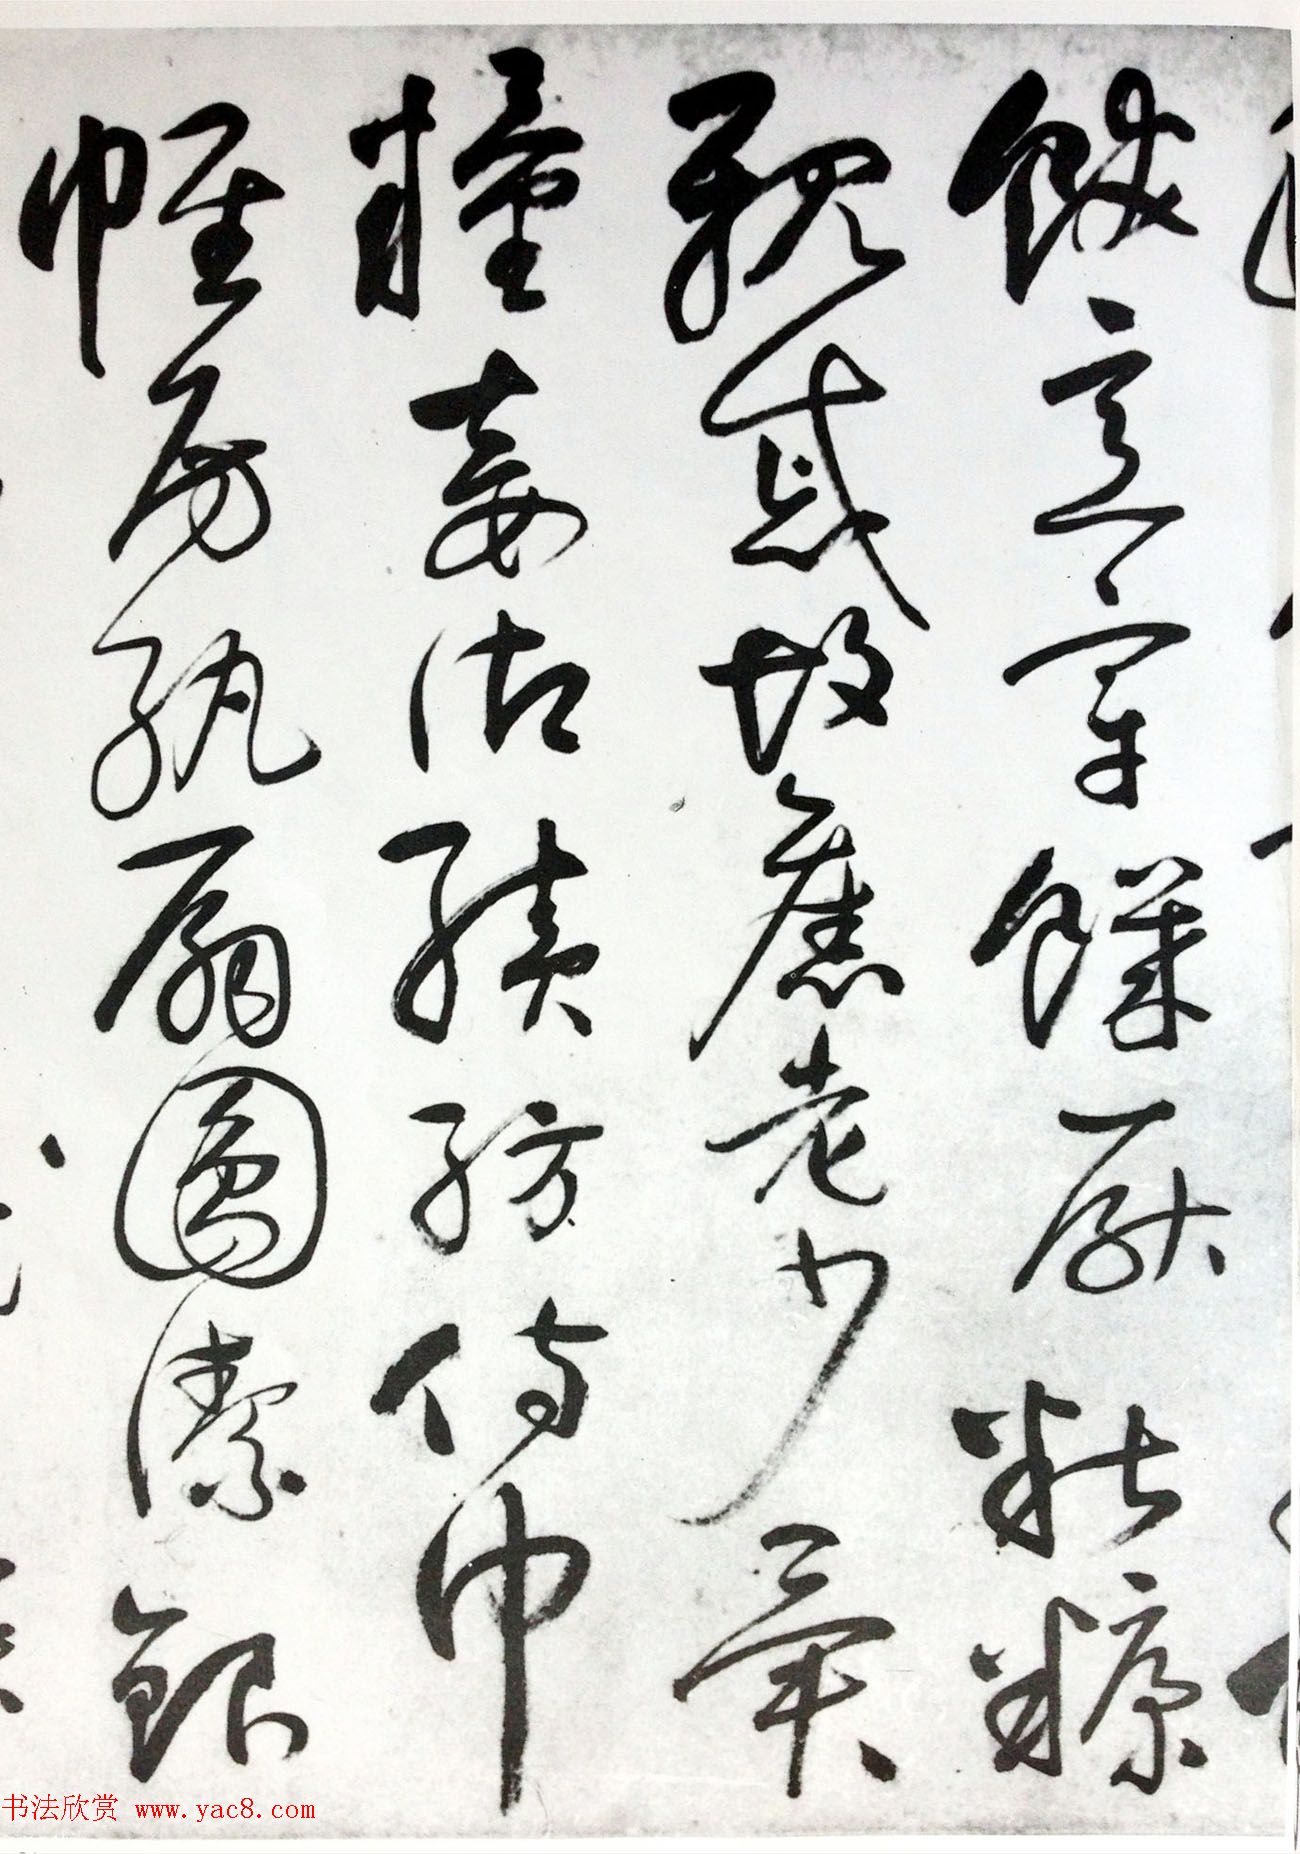 飫烹宰饑厭糟糠
親戚故舊老少異
糧妾御績紡侍巾
帷房紈扇圓潔銀
书法欣赏 www.yac8.com